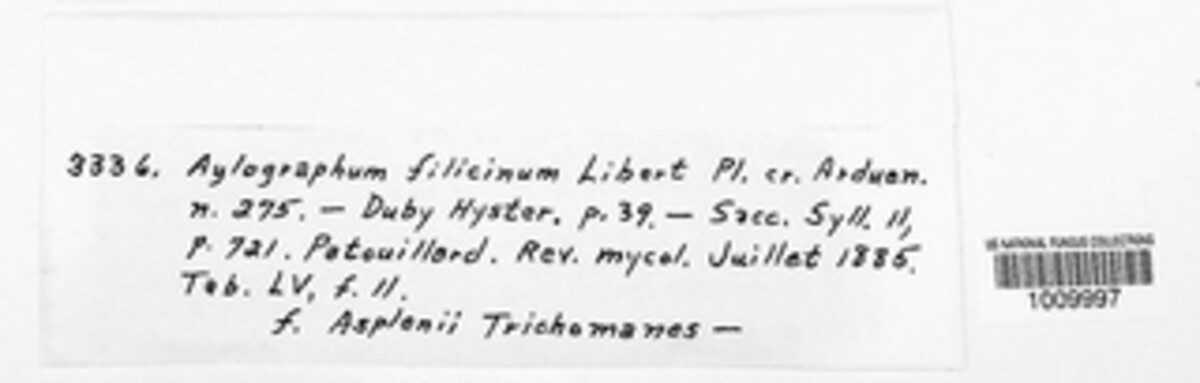 3336. Aylographum filicinum Libert Pl. cr. Arduen.
n. 275. — Duby Hyster. p. 39. — Sacc. Syll. II,
p. 721. Patouillard. Rev. mycol. Juillet 1885.
Tab. LV, f. 11.
f. Asplenii Trichomanes —
US NATIONAL FUNGUS COLLECTIONS
1009997